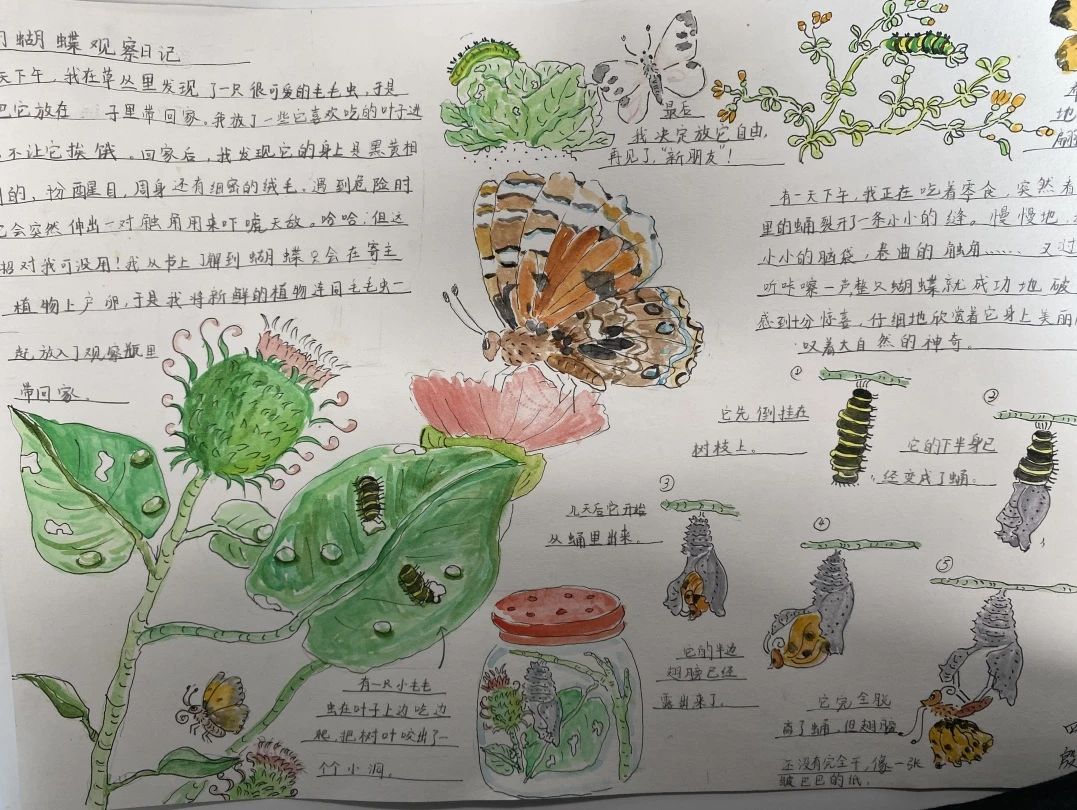 蝴蝶观察日记
天下午，我在草丛里发现了一只很可爱的毛毛虫，于是
把它放在 子里带回家。我放了一些它喜欢吃的叶子进
不让它挨饿。回家后，我发现它的身上是黑黄相
间的，十分醒目，周身还有细密的绒毛。遇到危险时
它会突然伸出一对触角用来吓唬天敌。哈哈！但这
招对我可没用！我从书上了解到蝴蝶只会在寄主
植物上产卵，于是我将新鲜的植物连同毛毛虫一
起放入了观察瓶里
带回家。
最后
我决定放它自由，
再见了“新朋友”！
有一天下午，我正在吃着零食，突然
里的蛹裂开了一条小小的缝。慢慢地，
小小的脑袋，卷曲的触角……又过
听咔嚓一声整只蝴蝶就成功地破
感到十分惊喜，仔细地欣赏着它身上美丽
叹着大自然的神奇。
①
它先倒挂在
树枝上。
②
它的下半身已
经变成了蛹。
③
几天后它开始
从蛹里出来。
④
它的半边
翅膀已经
露出来了。
⑤
它完全脱
离了蛹，但翅膀
还没有完全干，像一张
皱巴巴的纸。
有一只小毛毛
虫在叶子上边吃边
爬，把树叶咬出了一
个个小洞。